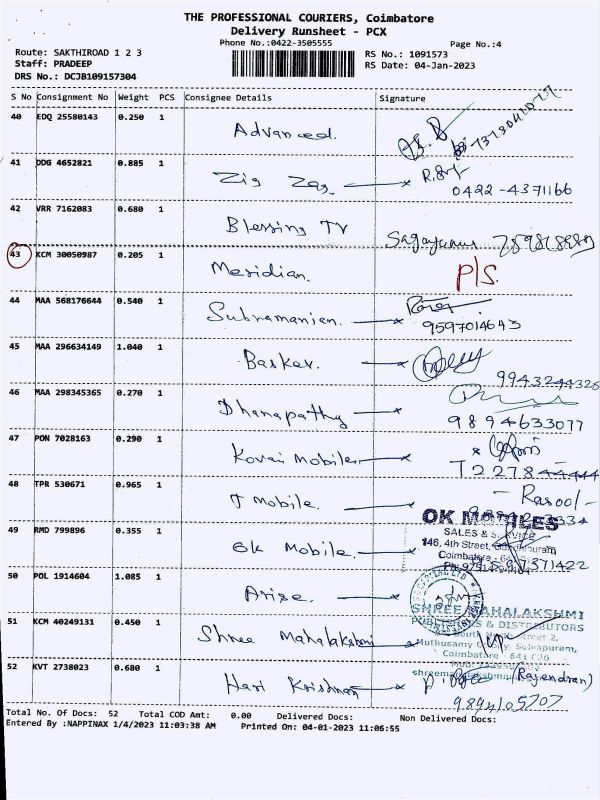 THE PROFESSIONAL COURIERS, Coimbatore
Delivery Runsheet - PCX
Phone No.:0422-3505555 Page No.:4
Route: SAKTHIROAD 1 2 3 RS No.: 1091573
Staff: PRADEEP RS Date: 04-Jan-2023
DRS No.: DCJB109157304
S No Consignment No Weight PCS Consignee Details Signature
40 EDQ 25580143 0.250 1 Advanced.
41 DDG 4652821 0.885 1 Zig Zag.
0422-4371166
42 VRR 7162083 0.680 1 Blessing TV
43 KCM 30050987 0.205 1 Meridian. P/S.
44 MAA 568176644 0.540 1 Subramanian.
9597014643
45 MAA 296634149 1.040 1 Basker.
9943244326
46 MAA 298345365 0.270 1 Dhanapathy
9894633077
47 PON 7028163 0.290 1 Kovai Mobiles
48 TPR 530671 0.965 1 T Mobile. - Rasool -
OK MOBILES
49 RMD 799896 0.355 1 Ok Mobile.
SALES & SERVICE
146, 4th Street,
Coimbatore
50 POL 1914604 1.085 1 Arise.
SHREE MAHALAKSHMI
PUBLISHERS & DISTRIBUTORS
51 KCM 40249131 0.450 1 Shree Mahalakshmi
Coimbatore
52 KVT 2738023 0.680 1 Hari Krishnan (Rajendran)
9894105707
Total No. Of Docs: 52 Total COD Amt: 0.00 Delivered Docs: Non Delivered Docs:
Entered By :NAPPINAX 1/4/2023 11:03:38 AM Printed On: 04-01-2023 11:06:55